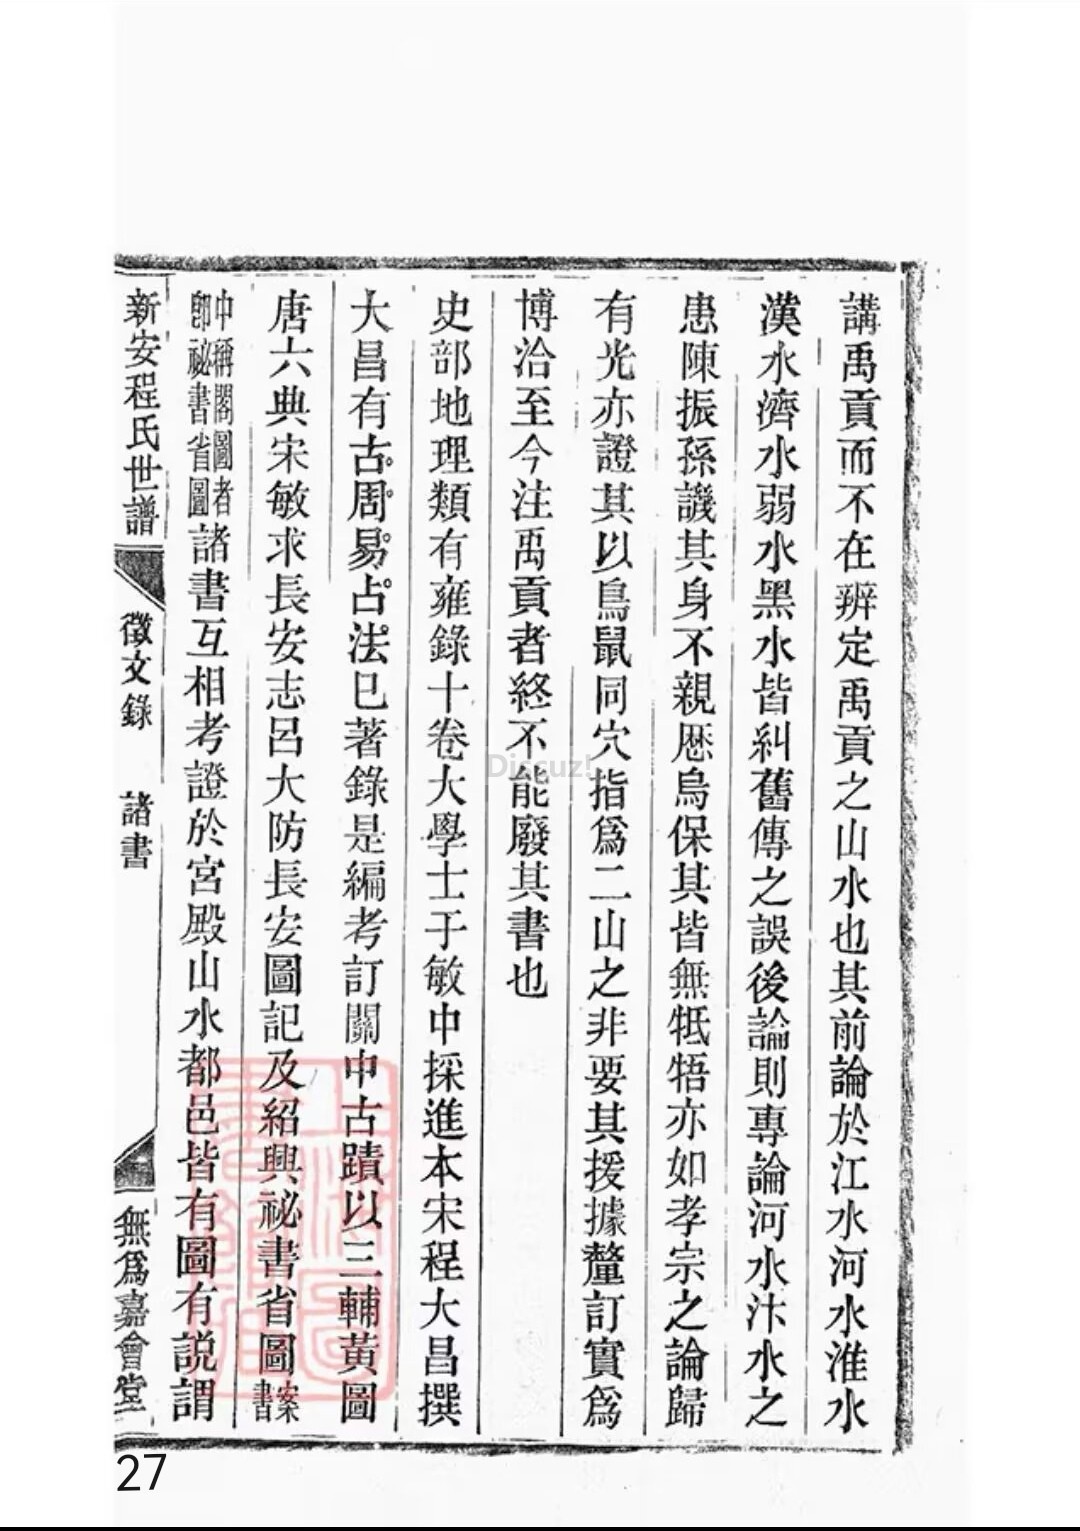 講禹貢而不在辨定禹貢之山水也其前論於江水河水淮水
漢水濟水弱水黑水皆糾舊傳之誤後論則專論河水汴水之
患陳振孫譏其身不親歷烏保其皆無牴牾亦如孝宗之論歸
有光亦證其以鳥鼠同穴指爲二山之非要其援據釐訂實爲
博洽至今注禹貢者終不能廢其書也
史部地理類有雍錄十卷大學士于敏中採進本宋程大昌撰
大昌有古周易占法已著錄是編考訂關中古蹟以三輔黃圖
唐六典宋敏求長安志呂大防長安圖記及紹興祕書省圖案書
中稱閣圖者卽祕書省圖諸書互相考證於宮殿山水都邑皆有圖有説謂
新安程氏世譜 徵文錄 諸書 無爲嘉會堂
Discuz!
27